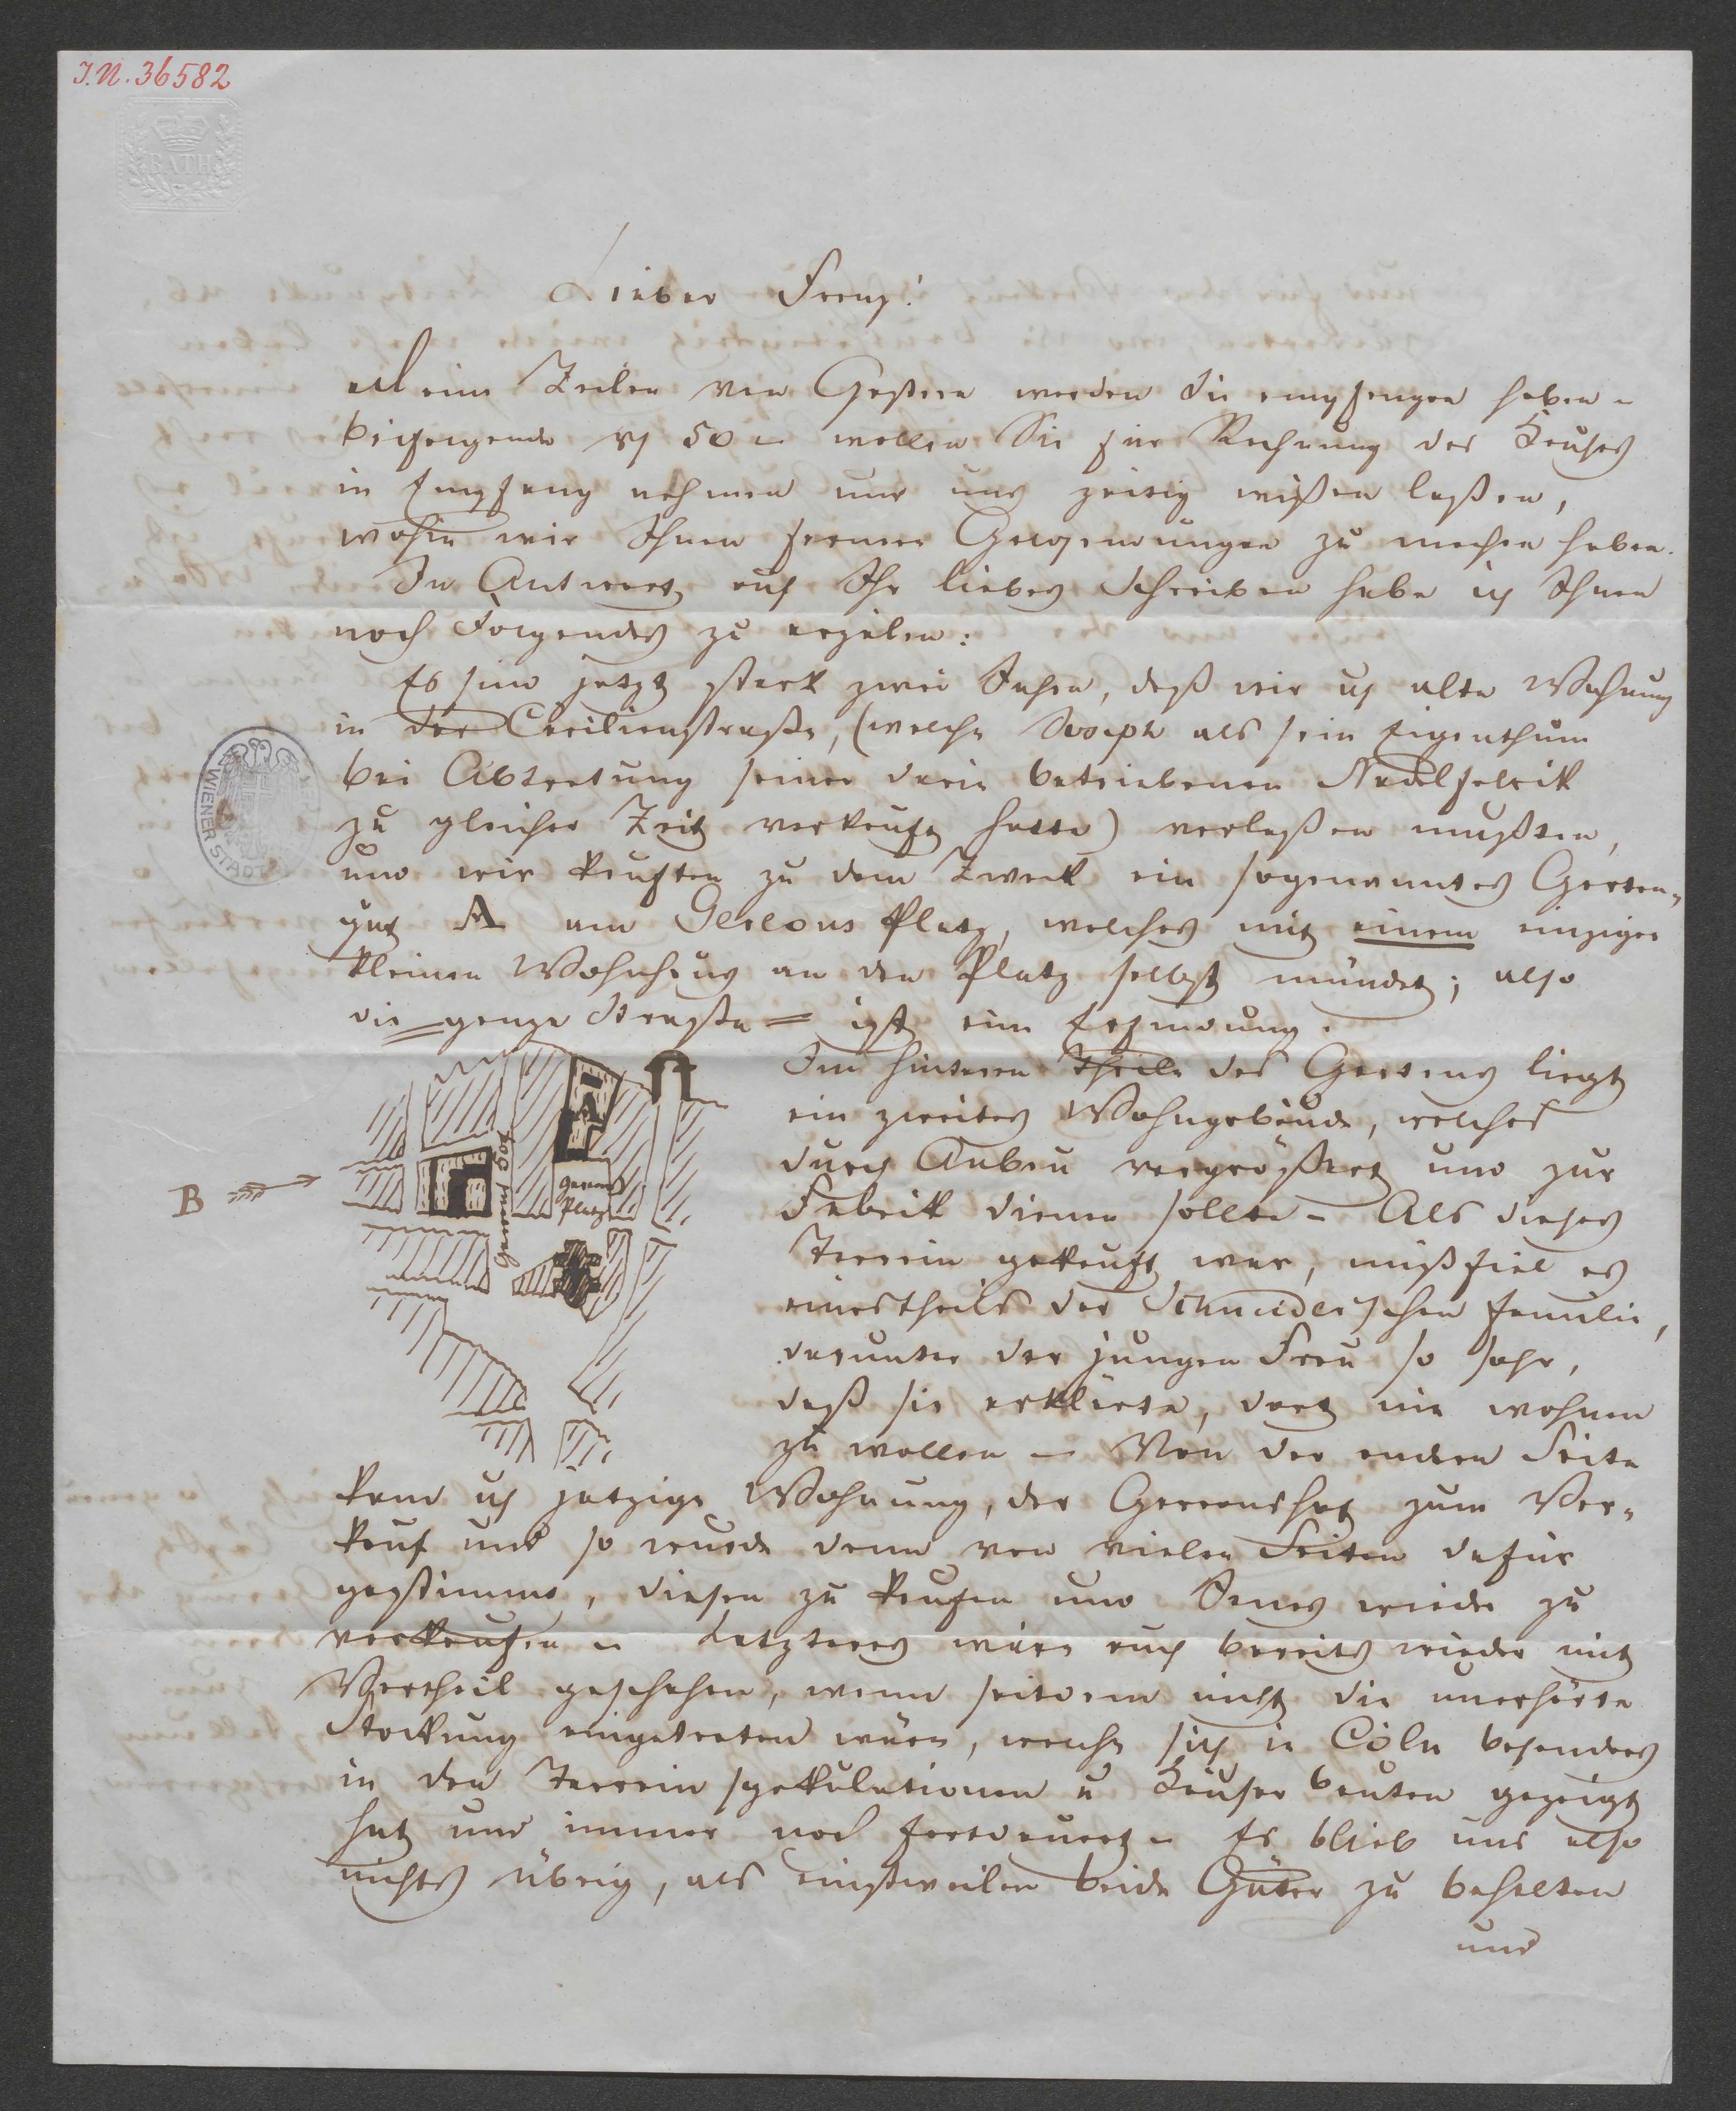 I.N. 36582
BATH
Lieber Franz!
Meine Zeilen von Gestern werden Sie empfangen haben –
beifolgende 50 – wollen Sie für Rechnung des Hauses
in Empfang nehmen und uns zeitig wißen laßen,
wohin wir Ihnen fernere zu machen haben.
In Antwort auf Ihr liebes Schreiben habe ich Ihnen
noch Folgendes zu erzälen:
Es sind jetzt stark zwei Jahre, daß wir alte Wohnung
in der Cecilienstraße, (welche Joseph als sein Eigenthum
bei Abtretung seiner darin betriebenen Nadelfabrik
zu gleicher Zeit verkauft hatte) verlaßen mußten,
und wir kauften zu dem Zweck ein sogenanntes Garten-
gut A am Gereons Platz, welches mit einem einzigen
kleinen Wohnhaus an den Platz selbst mündet; also
die = ganze Straße = ist eine Erfindung.
Im hinteren Theile des Gartens liegt
ein zweites Wohngebäude, welches
durch Anbau vergrößert und zur
Fabrik dienen sollte – Als dieses
Terrain gekauft war, mißfiel es
einestheils der Schmidt'schen Familie,
darunter der jungen Frau so sehr,
daß sie erklärte, dort nie wohnen
zu wollen – Von der andern Seite
kam jetzige Wohnung, der Gereonshof zum Ver-
kauf und so wurde denn von vielen Seiten dafür
gestimmt, diesen zu kaufen und Jenes wieder zu
verkaufen – Letzteres wäre auch bereits wieder mit
Vortheil geschehen, wenn seitdem nicht die unerhörte
Stockung eingetreten wäre, welche sich in Cöln besonders
in den Terrain spekulationen u Häuser bauten gezeigt
hat und immer noch fortdauert – Es blieb uns also
nichts übrig, als einstweilen beide Güter zu behalten
und
B
A
Gereons
Platz
Gereonshof
WIENER STADT